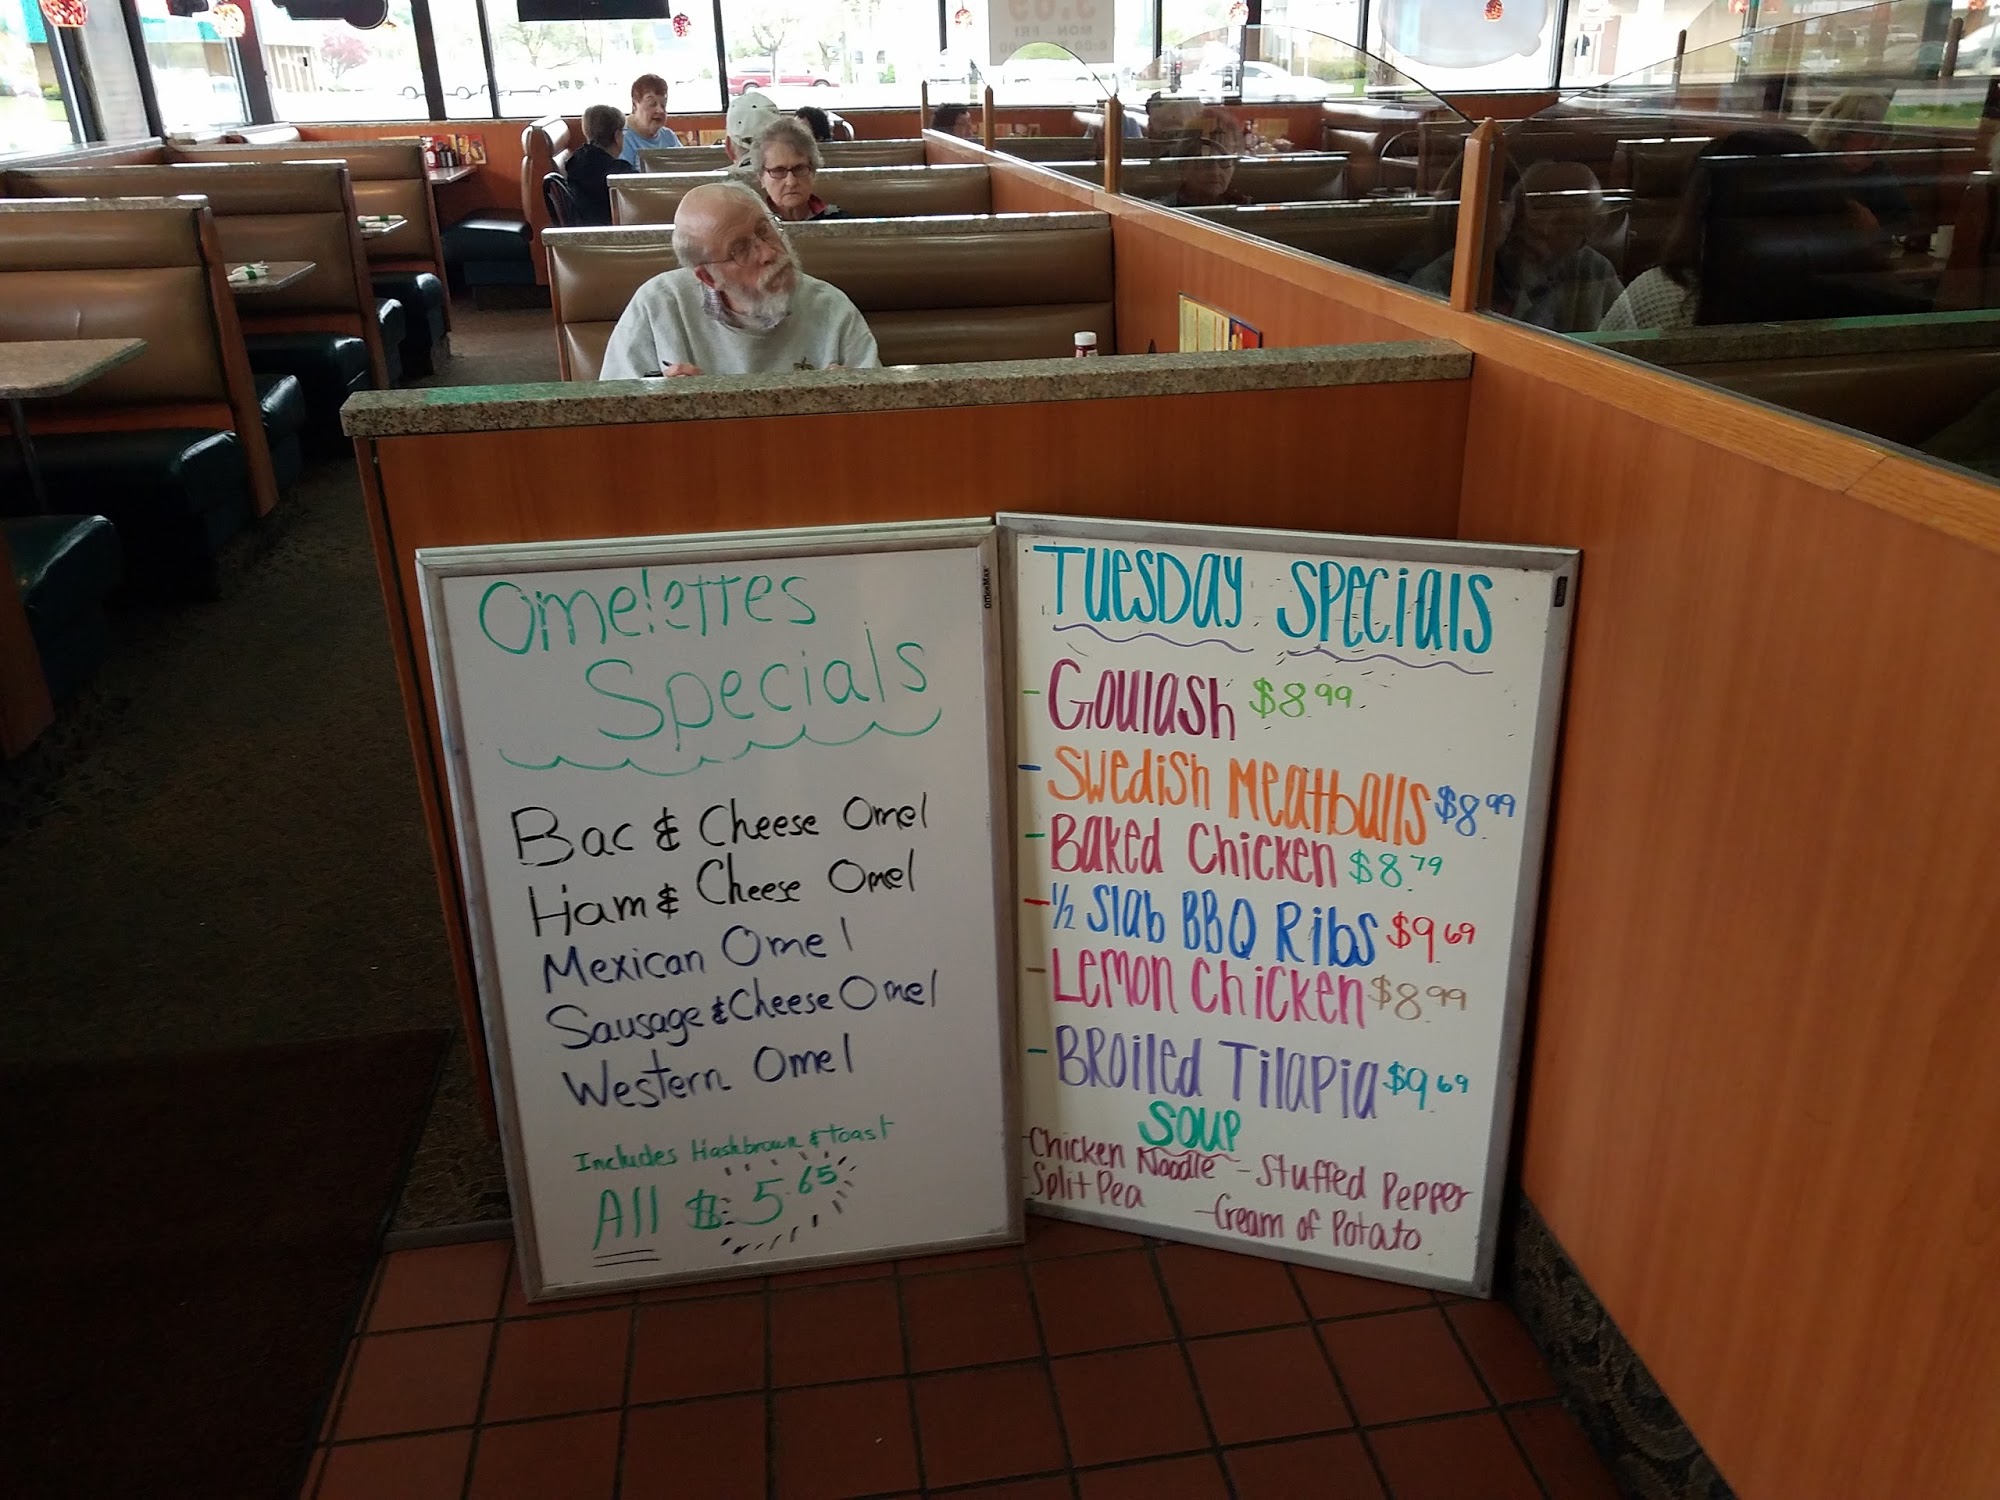 Omelettes
Specials
Bac & Cheese Omel
Ham & Cheese Omel
Mexican Omel
Sausage & Cheese Omel
Western Omel
Includes Hashbrown & toast
All $5.65
OfficeMax
Tuesday Specials
- Goulash $8.99
- Swedish Meatballs $8.99
- Baked Chicken $8.79
- 1/2 Slab BBQ Ribs $9.69
- Lemon Chicken $8.99
- Broiled Tilapia $9.69
Soup
- Chicken Noodle - Stuffed Pepper
- Split Pea - Cream of Potato
MON FRI